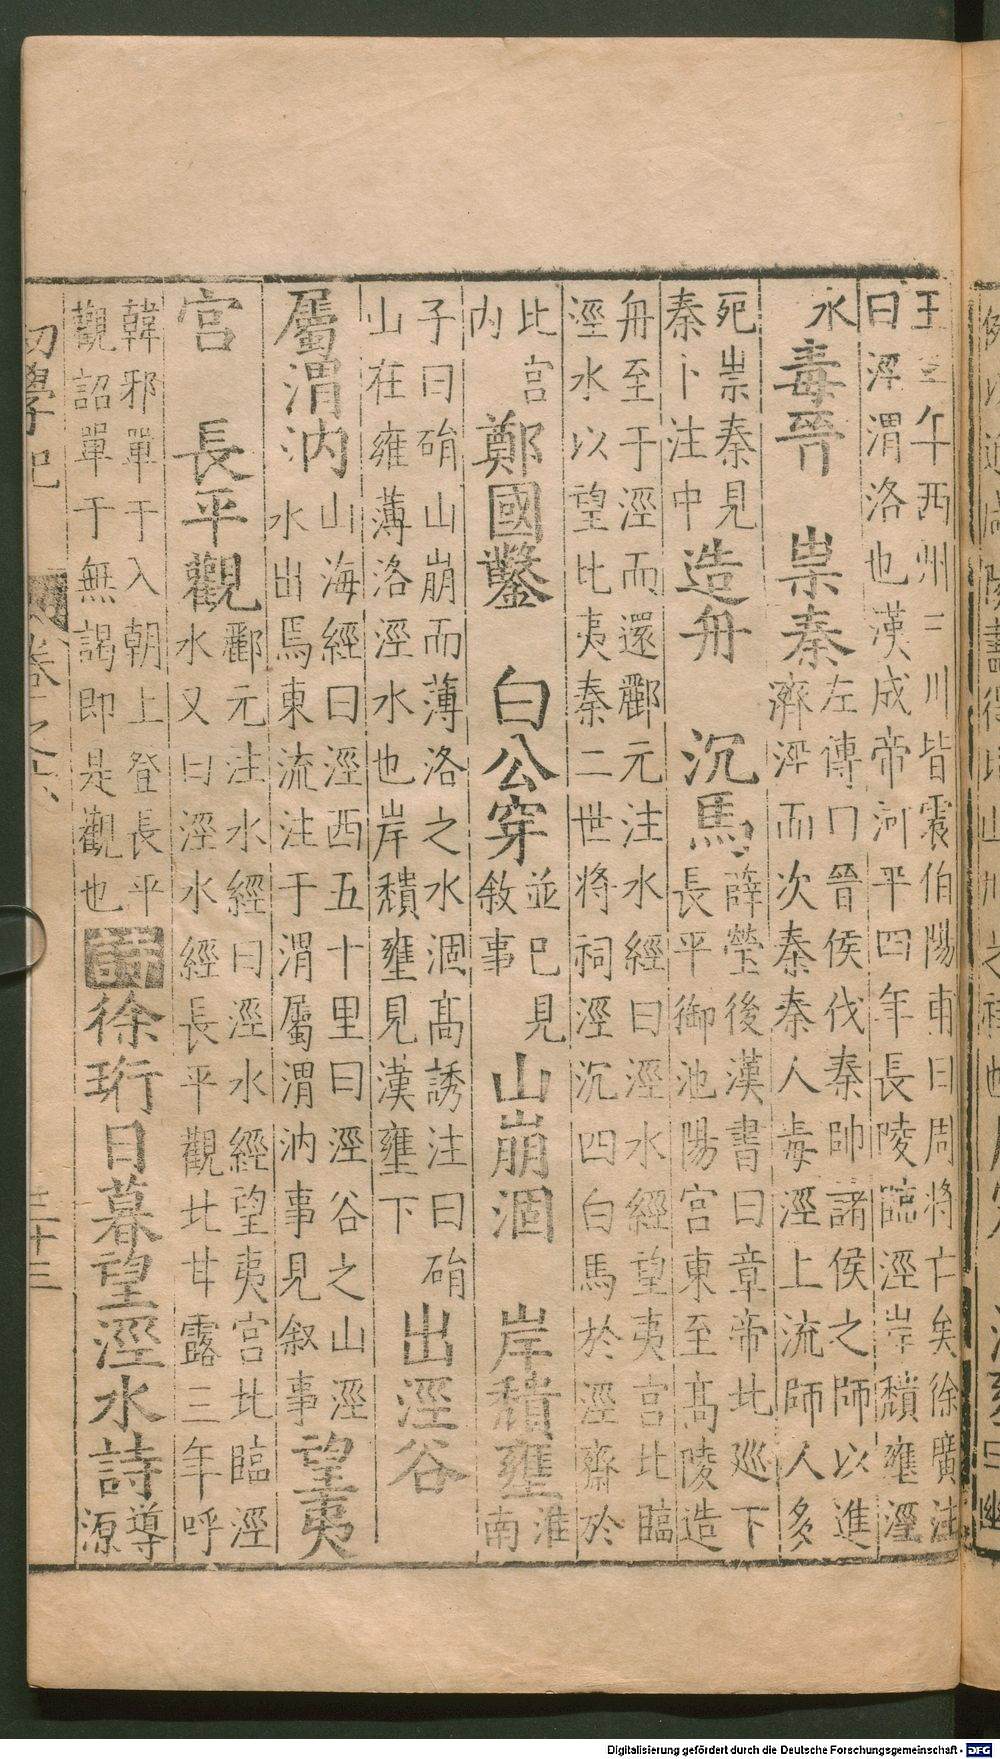 王 二 年西州三川皆震伯陽甫曰周將亡矣徐廣注
曰涇渭洛也漢成帝河平四年長陵臨涇岸穨壅涇
水
毒晉 祟秦
左傳曰晉侯伐秦帥諸侯之師以進
濟涇而次秦秦人毒涇上流師人多
死祟秦見
秦卜注中
造舟 沉馬
薛瑩後漢書曰章帝北巡下
長平御池陽宮東至高陵造
舟至于涇而還酈元注水經曰涇水經望夷宮北臨
涇水以望北夷秦二世將祠涇沉四白馬於涇齋於
此宮
内
鄭國鑿 白公穿
並已見
敘事
山崩涸 岸穨壅
淮
南
子曰硝山崩而薄洛之水涸高誘注曰硝
山在雍薄洛涇水也岸穨壅見漢壅下
出涇谷
屬渭汭
山海經曰涇西五十里曰涇谷之山涇
水出焉東流注于渭屬渭汭事見叙事
望夷
宮 長平觀
酈元注水經曰涇水經望夷宮北臨涇
水又曰涇水經長平觀北甘露三年呼
韓邪單于入朝上登長平
觀詔單于無謁即是觀也
詩
徐珩日暮望涇水詩
導
源
初學記 卷之六 三十三
Digitalisierung gefördert durch die Deutsche Forschungsgemeinschaft - DFG